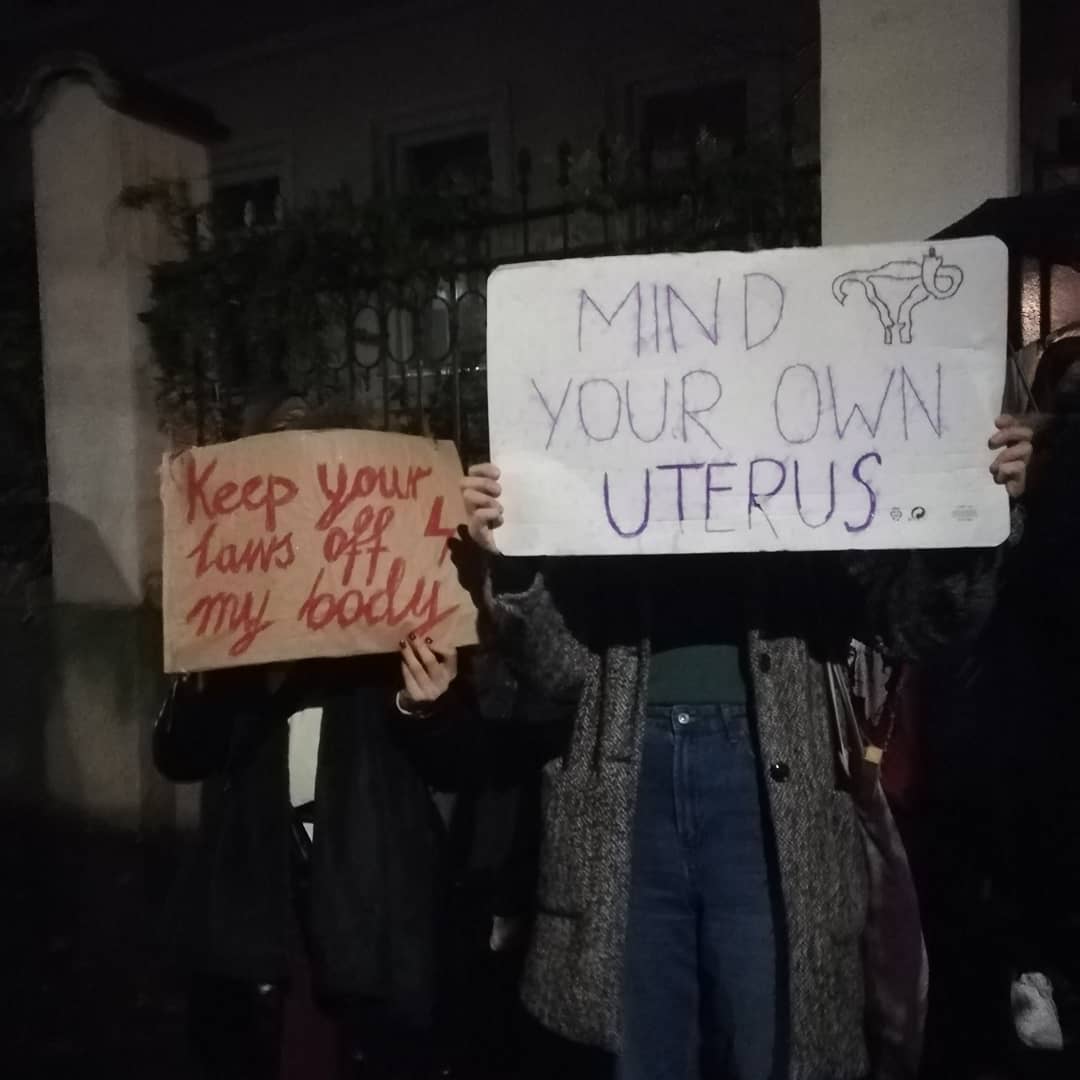 Keep your
laws off
my body
MIND
YOUR OWN
UTERUS